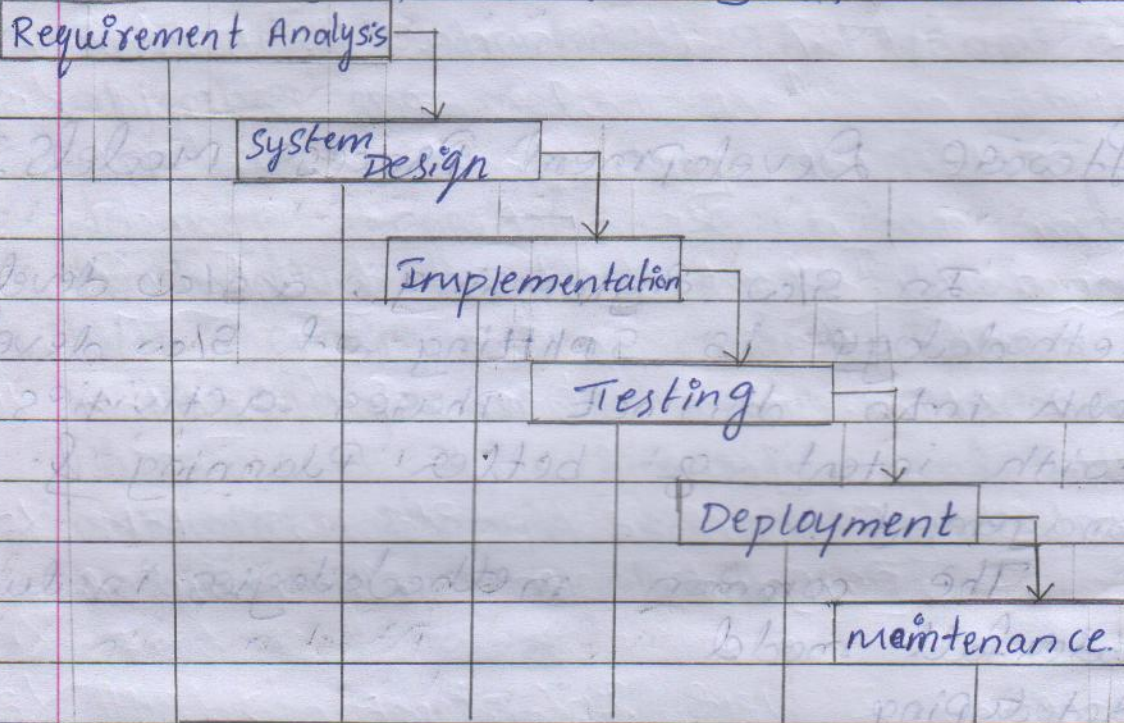 Requirement Analysis
System
Design
Implementation
Testing
Deployment
maintenance.